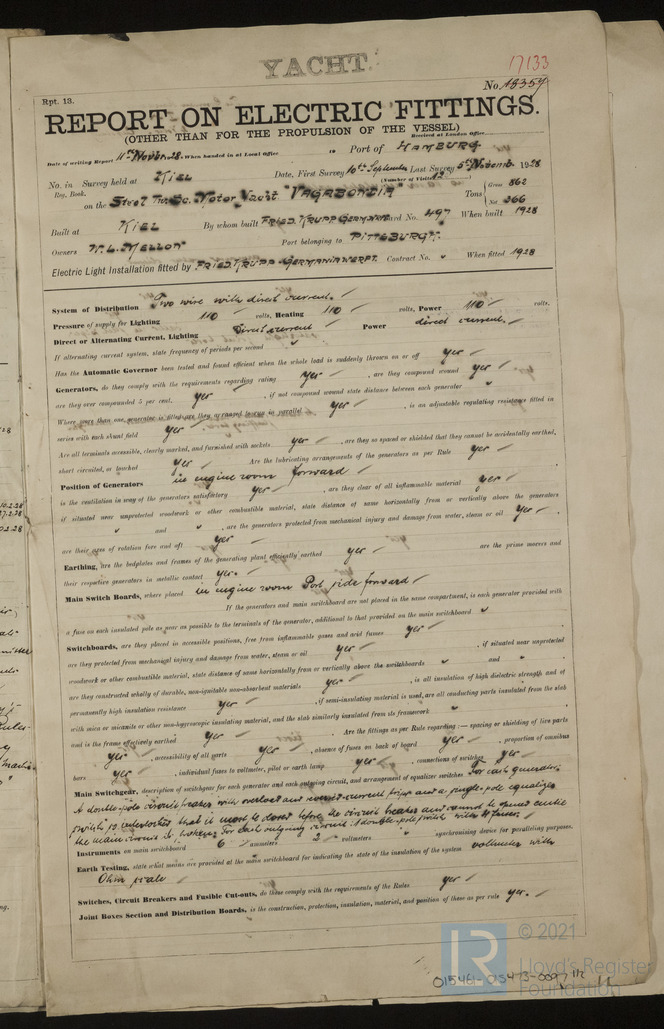 YACHT.
17133
Rpt. 13.
No. 18357
REPORT ON ELECTRIC FITTINGS.
(OTHER THAN FOR THE PROPULSION OF THE VESSEL)
Received at London Office
Date of writing Report 11th Novbr. 28. When handed in at Local Office 19 Port of HAMBURG
No. in Survey held at KIEL Date, First Survey 16th September Last Survey 5th Novemb 1928
Reg. Book. (Number of Visits
on the Steel Tw. Sc. Motor Yacht "VAGABONDIA" Tons Gross 862
Net 366
Built at KIEL By whom built FRIED. KRUPP GERMANIA Yard No. 497 When built 1928
Owners W. L. MELLON Port belonging to PITTSBURGH.
Electric Light Installation fitted by FRIED. KRUPP-GERMANIAWERFT. Contract No. " When fitted 1928
System of Distribution Two wire with direct current.
Pressure of supply for Lighting 110 volts, Heating 110 volts, Power 110 volts.
Direct or Alternating Current, Lighting Direct current Power direct current.
If alternating current system, state frequency of periods per second "
Has the Automatic Governor been tested and found efficient when the whole load is suddenly thrown on or off yes
Generators, do they comply with the requirements regarding rating yes , are they compound wound yes
are they over compounded 5 per cent. yes , if not compound wound state distance between each generator "
Where more than one generator is fitted are they arranged to run in parallel yes , is an adjustable regulating resistance fitted in
series with each shunt field yes
Are all terminals accessible, clearly marked, and furnished with sockets yes , are they so spaced or shielded that they cannot be accidentally earthed,
short circuited, or touched yes Are the lubricating arrangements of the generators as per Rule yes
Position of Generators in engine room forward
is the ventilation in way of the generators satisfactory yes , are they clear of all inflammable material yes
if situated near unprotected woodwork or other combustible material, state distance of same horizontally from or vertically above the generators
" and " , are the generators protected from mechanical injury and damage from water, steam or oil yes
are their axes of rotation fore and aft yes
Earthing, are the bedplates and frames of the generating plant efficiently earthed yes are the prime movers and
their respective generators in metallic contact yes.
Main Switch Boards, where placed in engine room Port side forward
If the generators and main switchboard are not placed in the same compartment, is each generator provided with
a fuse on each insulated pole as near as possible to the terminals of the generator, additional to that provided on the main switchboard "
Switchboards, are they placed in accessible positions, free from inflammable gases and acid fumes yes
are they protected from mechanical injury and damage from water, steam or oil yes , if situated near unprotected
woodwork or other combustible material, state distance of same horizontally from or vertically above the switchboards " and "
are they constructed wholly of durable, non-ignitable non-absorbent materials yes , is all insulation of high dielectric strength and of
permanently high insulation resistance yes , if semi-insulating material is used, are all conducting parts insulated from the slab
with mica or micanite or other non-hygroscopic insulating material, and the slab similarly insulated from its framework "
and is the frame effectively earthed yes Are the fittings as per Rule regarding:— spacing or shielding of live parts
yes , accessibility of all parts yes , absence of fuses on back of board yes , proportion of omnibus
bars yes , individual fuses to voltmeter, pilot or earth lamp yes , connections of switches yes
Main Switchgear, description of switchgear for each generator and each outgoing circuit, and arrangement of equalizer switches For each generator:
A double-pole circuit breaker with overload and reverse-current trips and a single-pole equalizer
switch so interlocked that it must be closed before the circuit breaker and cannot be opened until
the main circuit is broken. For each outgoing circuit: 1 double-pole switch with 2 fuses.
Instruments on main switchboard 6 ammeters 2 voltmeters " synchronizing device for paralleling purposes.
Earth Testing, state what means are provided at the main switchboard for indicating the state of the insulation of the system voltmeter with
Ohm scale
Switches, Circuit Breakers and Fusible Cut-outs, do these comply with the requirements of the Rules yes
Joint Boxes Section and Distribution Boards, is the construction, protection, insulation, material, and position of these as per rule yes.
© 2021
Lloyd's Register
Foundation